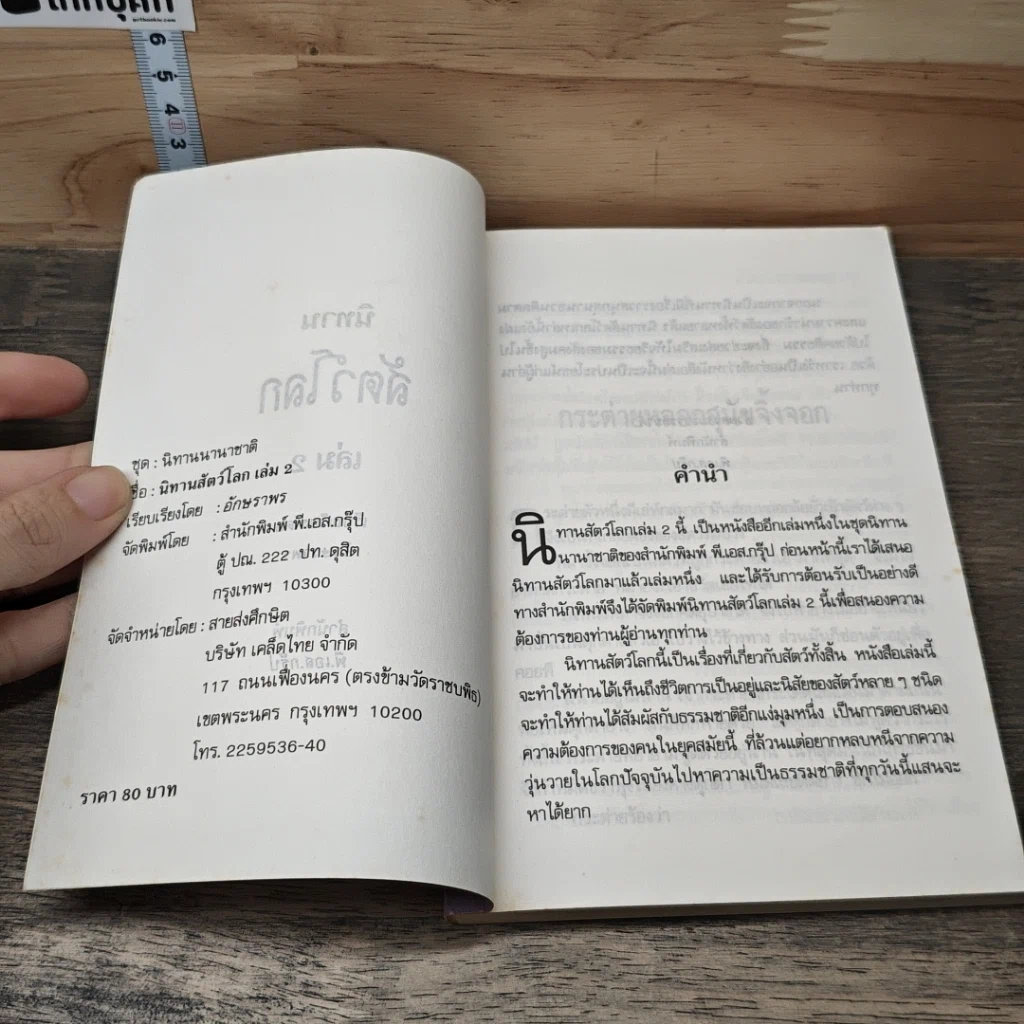 6
5
4
3
ชุด : นิทานนานาชาติ
ชื่อ : นิทานสัตว์โลก เล่ม 2
เรียบเรียงโดย : อักษราพร
จัดพิมพ์โดย : สำนักพิมพ์ พี.เอส.กรุ๊ป
ตู้ ปณ. 222 ปท. ดุสิต
กรุงเทพฯ 10300
จัดจำหน่ายโดย : สายส่งศึกษิต
บริษัท เคล็ดไทย จำกัด
117 ถนนเฟื่องนคร (ตรงข้ามวัดราชบพิธ)
เขตพระนคร กรุงเทพฯ 10200
โทร. 2259536-40
ราคา 80 บาท
คำนำ
นิทานสัตว์โลกเล่ม 2 นี้ เป็นหนังสืออีกเล่มหนึ่งในชุดนิทาน
นานาชาติของสำนักพิมพ์ พี.เอส.กรุ๊ป ก่อนหน้านี้เราได้เสนอ
นิทานสัตว์โลกมาแล้วเล่มหนึ่ง และได้รับการต้อนรับเป็นอย่างดี
ทางสำนักพิมพ์จึงได้จัดพิมพ์นิทานสัตว์โลกเล่ม 2 นี้เพื่อสนองความ
ต้องการของท่านผู้อ่านทุกท่าน
นิทานสัตว์โลกนี้เป็นเรื่องที่เกี่ยวกับสัตว์ทั้งสิ้น หนังสือเล่มนี้
จะทำให้ท่านได้เห็นถึงชีวิตการเป็นอยู่และนิสัยของสัตว์หลาย ๆ ชนิด
จะทำให้ท่านได้สัมผัสกับธรรมชาติอีกแง่มุมหนึ่ง เป็นการตอบสนอง
ความต้องการของคนในยุคสมัยนี้ ที่ล้วนแต่อยากหลบหนีจากความ
วุ่นวายในโลกปัจจุบันไปหาความเป็นธรรมชาติที่ทุกวันนี้แสนจะ
หาได้ยาก